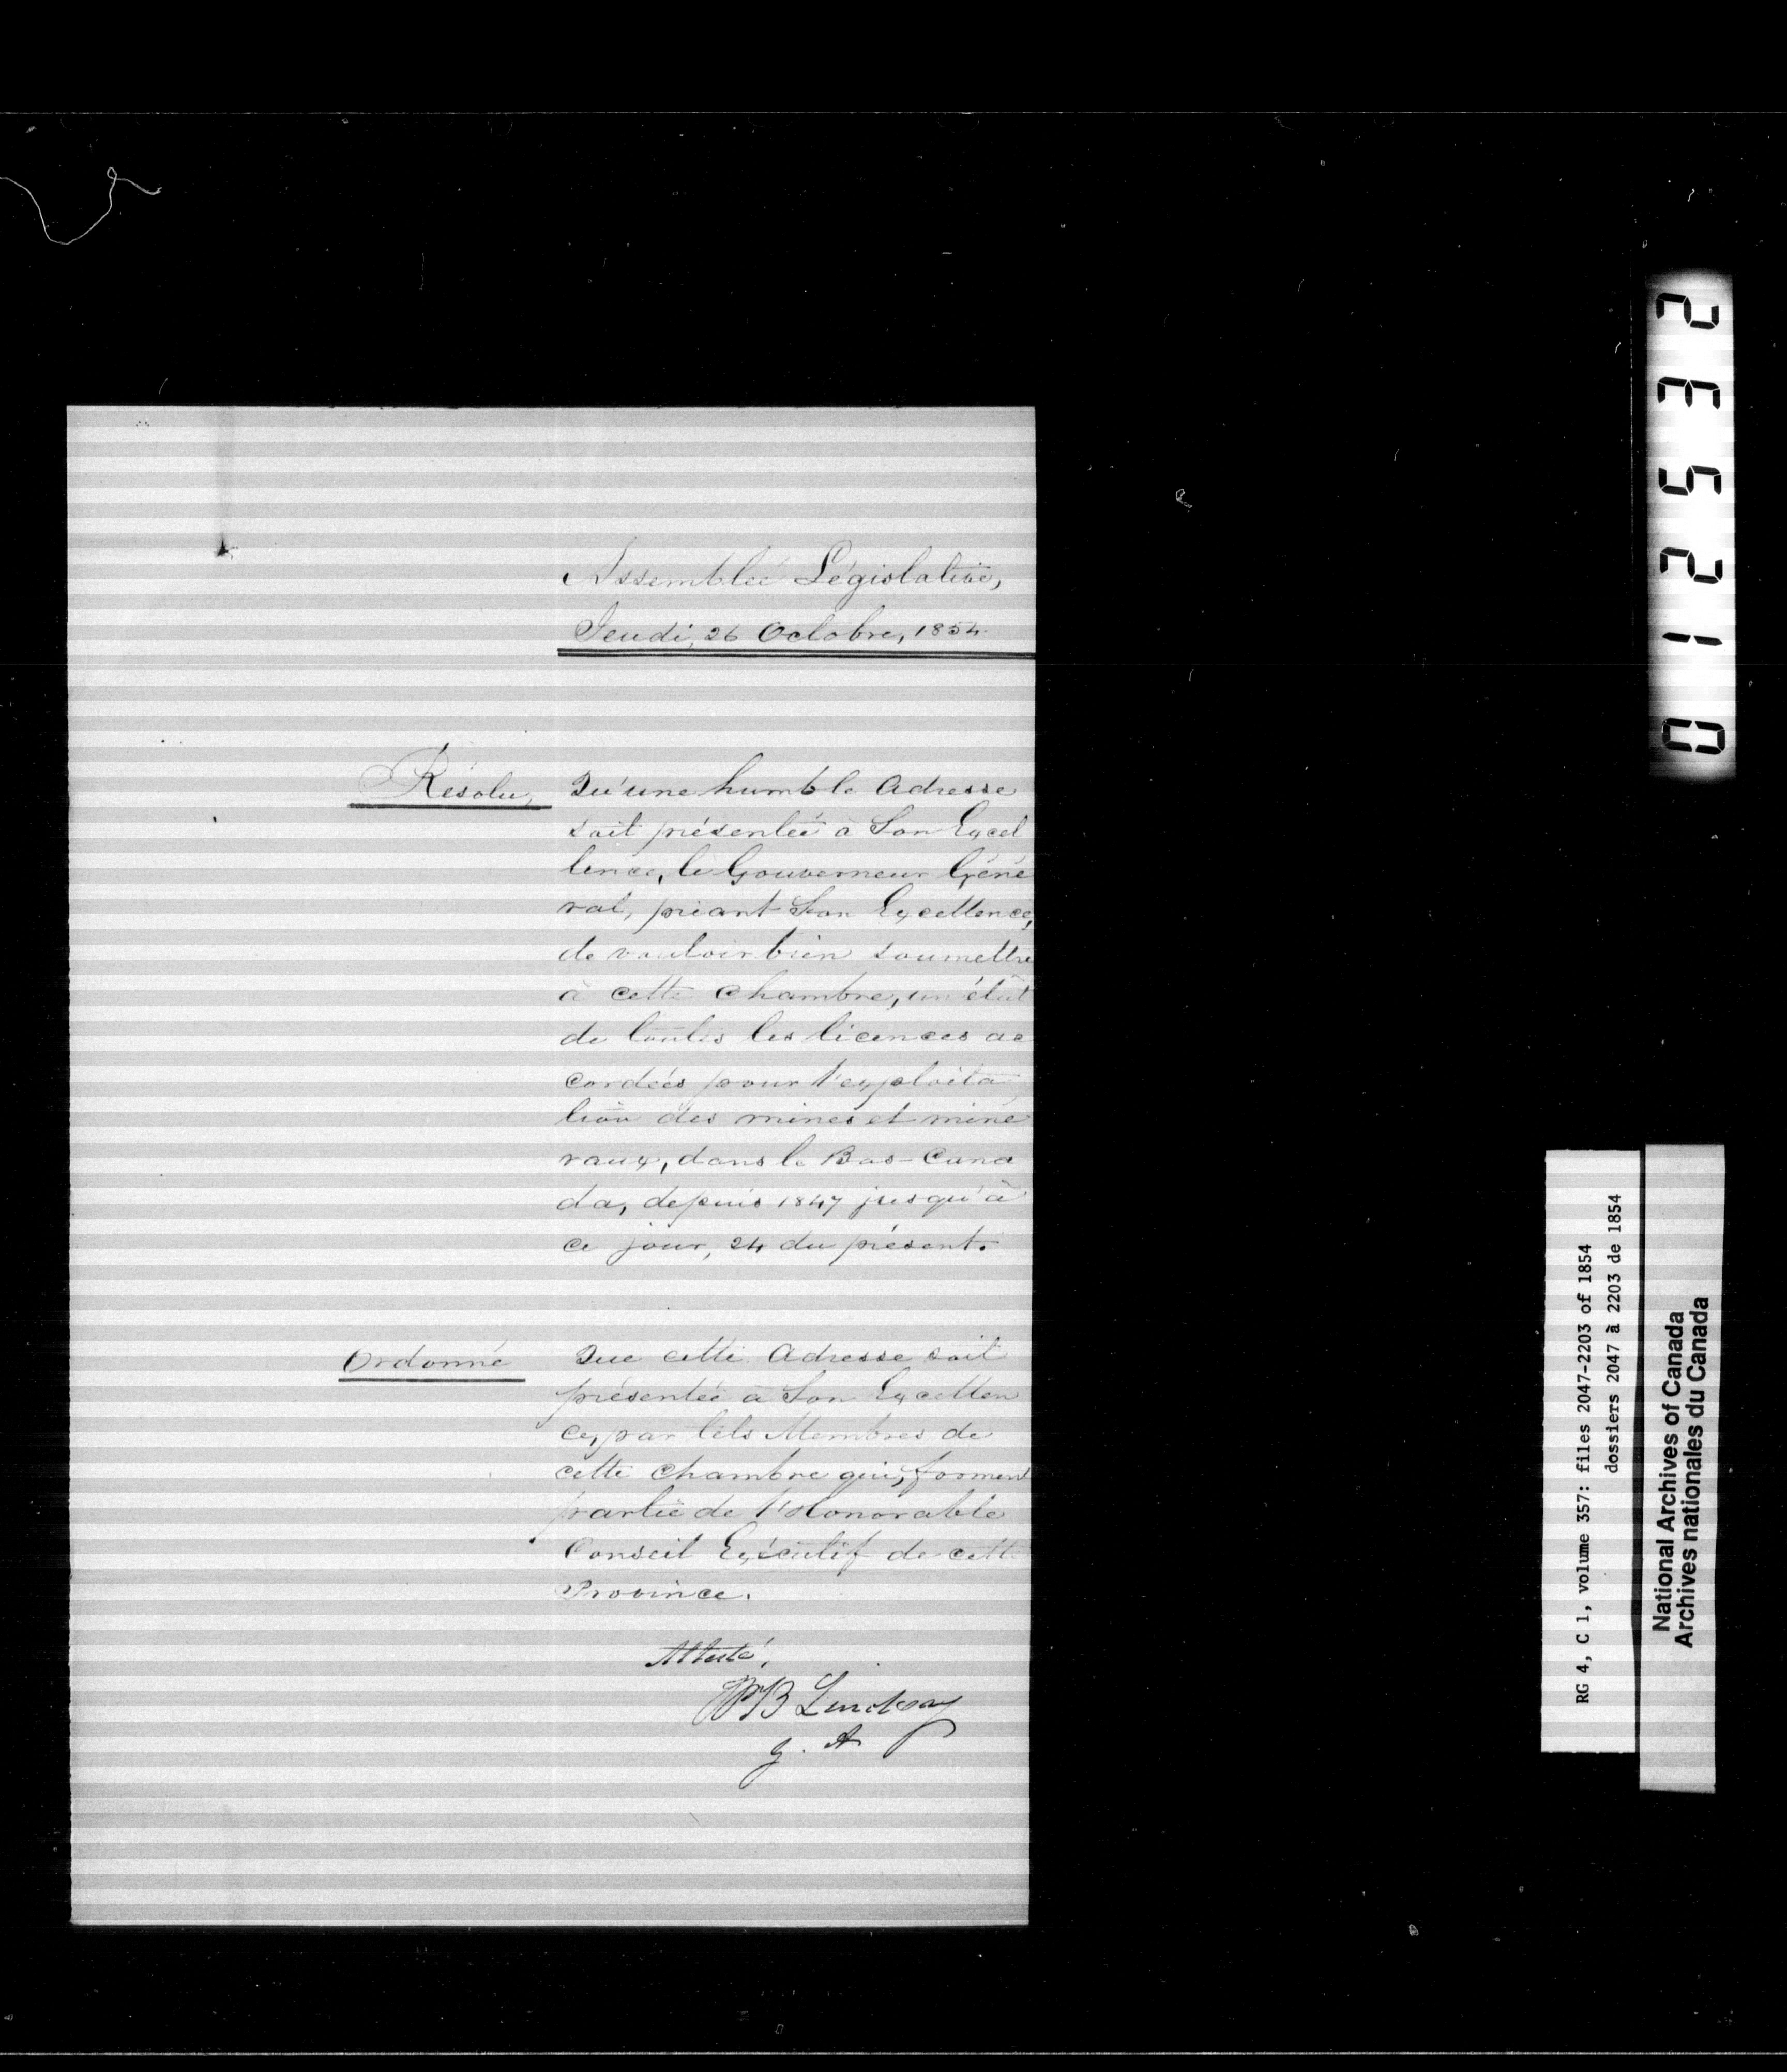 Assemblée Législative,
Jeudi, 26 Octobre, 1854.
Résolu, Qu'une humble Adresse
soit présentée à Son Excel
lence, le Gouverneur Géné
ral, priant Son Excellence,
de vouloir bien soumettre
à cette Chambre, un état
de toutes les licences ac
cordées pour l'exploita
tion des mines et miné
raux, dans le Bas-Cana
da, depuis 1847 jusqu'à
ce jour, 24 du présent.
Ordonné Que cette Adresse soit
présentée à Son Excellen
ce, par tels Membres de
cette Chambre qui, forment
partie de l'Honorable
Conseil Exécutif de cette
Province.
Attesté,
WB Lindsay
G. A
012532
RG 4, C 1, volume 357: files 2047-2203 of 1854
dossiers 2047 à 2203 de 1854
National Archives of Canada
Archives nationales du Canada